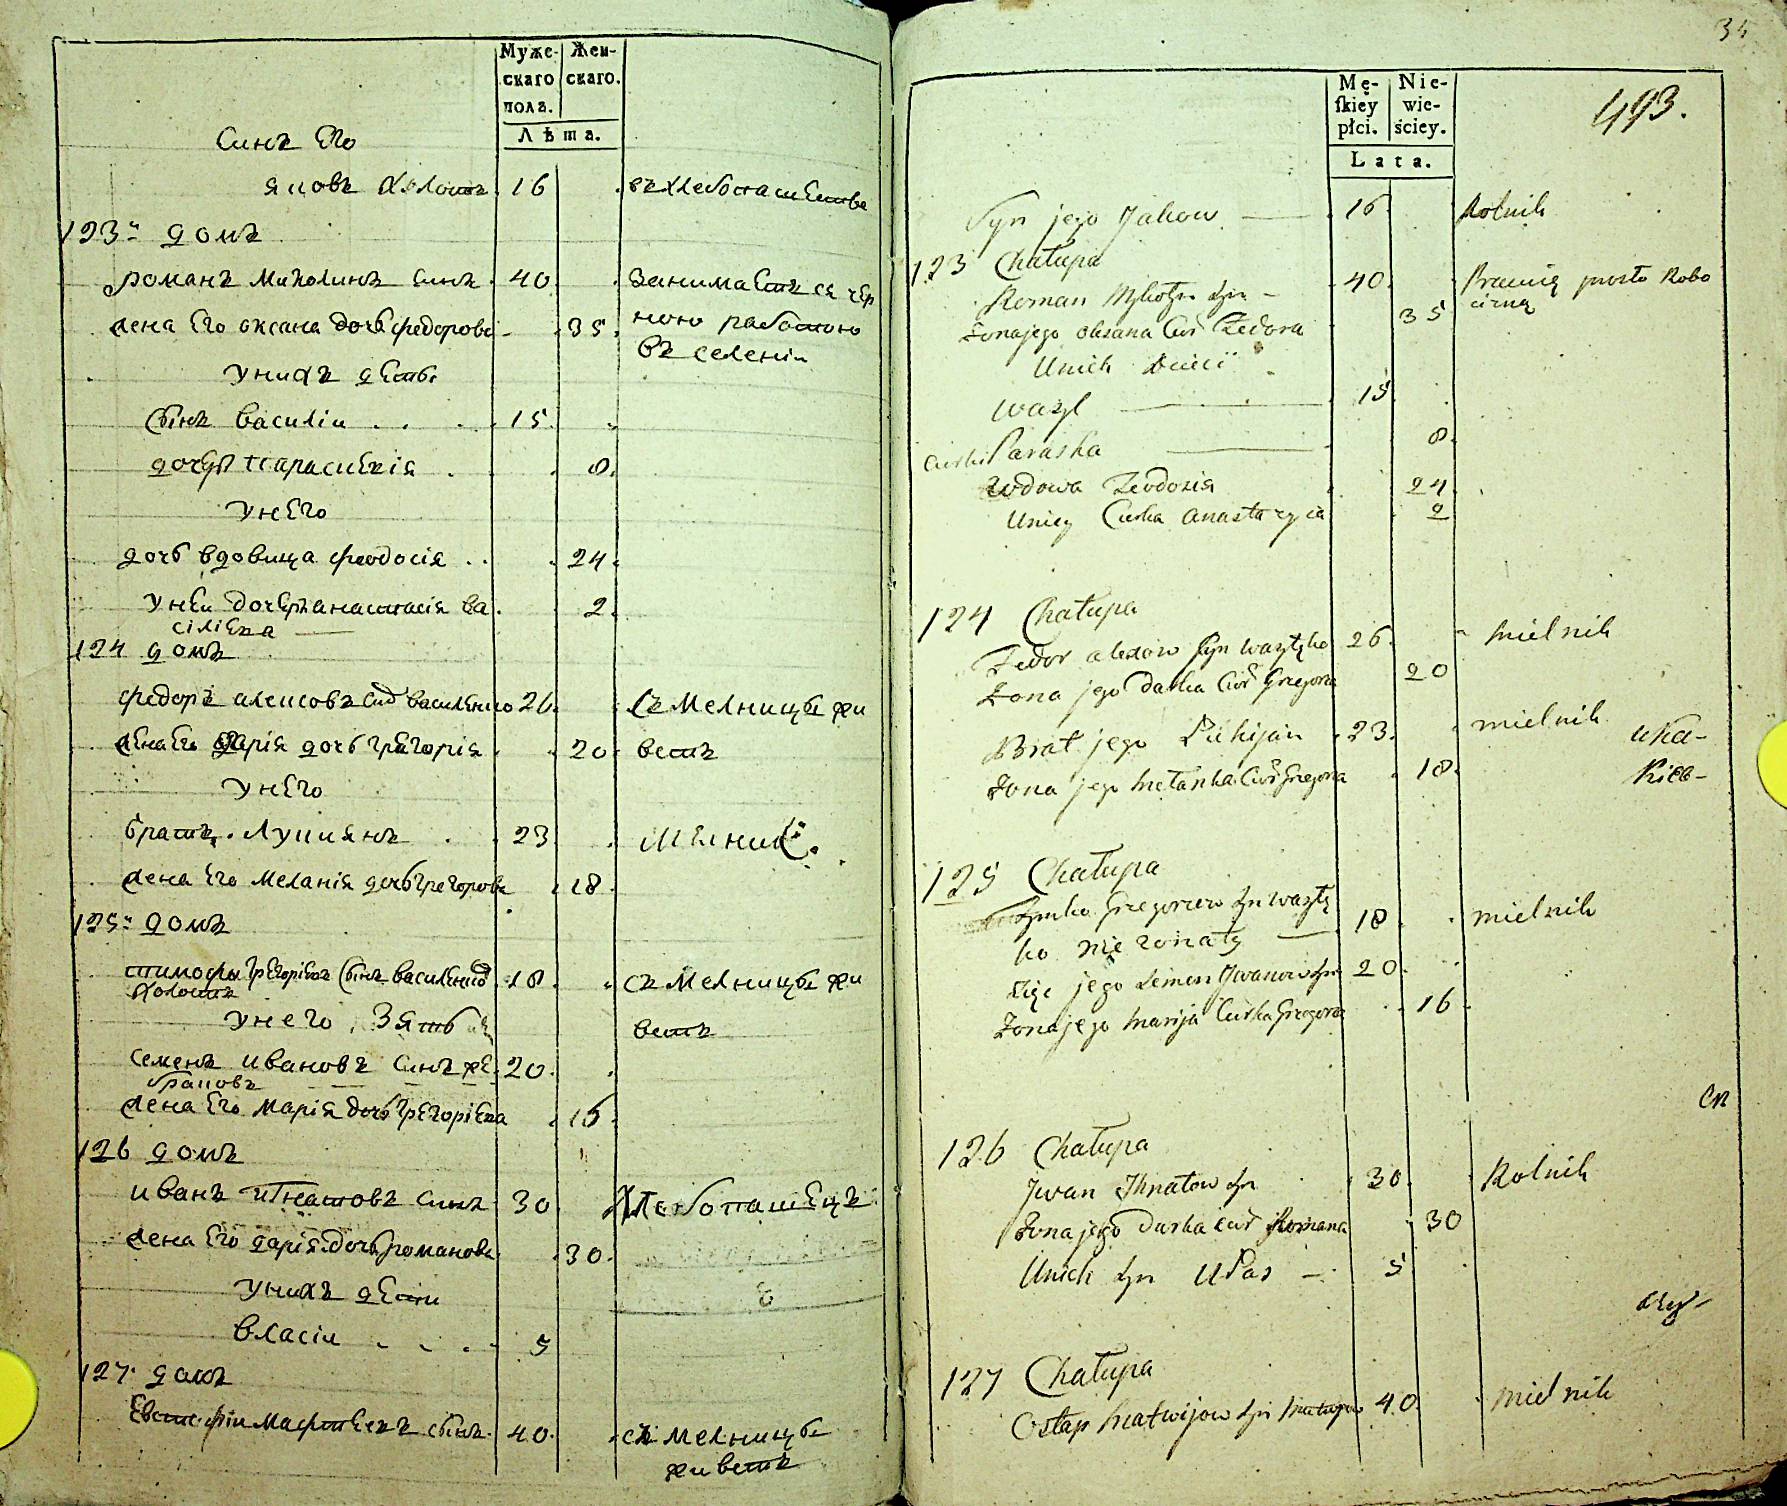 Муже-
скаго
пола.
Жен-
скаго.
Лѣта.
Синъ Его
яковъ Холостъ 16 въ хлебопашествѣ
123й домъ
романъ Миколинъ синъ 40 занимаетъся чер
жена Его оксана дочь федорова 35 ною работою
въ селенїи
у нихъ дети
сынъ Василїи 15
дочерь параскевїя 8
у него
дочь вдовица феодосїя 24
у неи дочерь анастасїя ва 2
сілїева
124 домъ
федоръ алексовъ синъ василенко 26 съ мелницы жи
жена Его дарїя дочь грегорїя 20 ветъ
у него
братъ Лукиянъ 23 мелникъ
жена Его Меланїя дочь грегорова 18
125й домъ
тимофы грегорїевъ сынъ василенко 18 съ мелницы жи
холостъ
у него Зять ветъ
семенъ ивановъ синъ же 20
жена Его Марїя дочь грегорїева 16
126 домъ
иванъ игнатовъ синъ 30 хлебопашецъ
жена Его дарїя дочь романова 30
у нихъ дети
власїи 5
127 домъ
Евстафїи матфеевъ сынъ 40 съ мелницы
живетъ
35
Mę-
skiey
płci.
Nie-
wie-
ściey.
Lata.
493.
Syn jego Jakow 16 Rolnik
123 Chałupa
Roman Mykołyn syn 40 Pracuię prosto Robo
cizną
Żona jego oksana Cur Fedora 35
U nich Dzieci
wasyl 15
Curka Paraska 8
wdowa Feodosia 24
U niey Curka anastazyia 2
124 Chałupa
Fedor alexow syn wasylko 26 mielnik
Żona jego Darka Cur Gregora 20
Brat jego Łukijan 23 mielnik
Żona jego Melanka Cur Gregora 18
125 Chałupa
Tymko Gregorow syn wasyl
ko nie żonaty 18 mielnik
Zięć jego Semen Iwanow syn 20
Żona jego Marija Curka Gregora 16
126 Chałupa
Iwan Ihnatow syn 30 Rolnik
Żona jego Darka cur Romana 30
U nich syn Ułas 5
127 Chałupa
Ostap Matwijow syn 40 mielnik